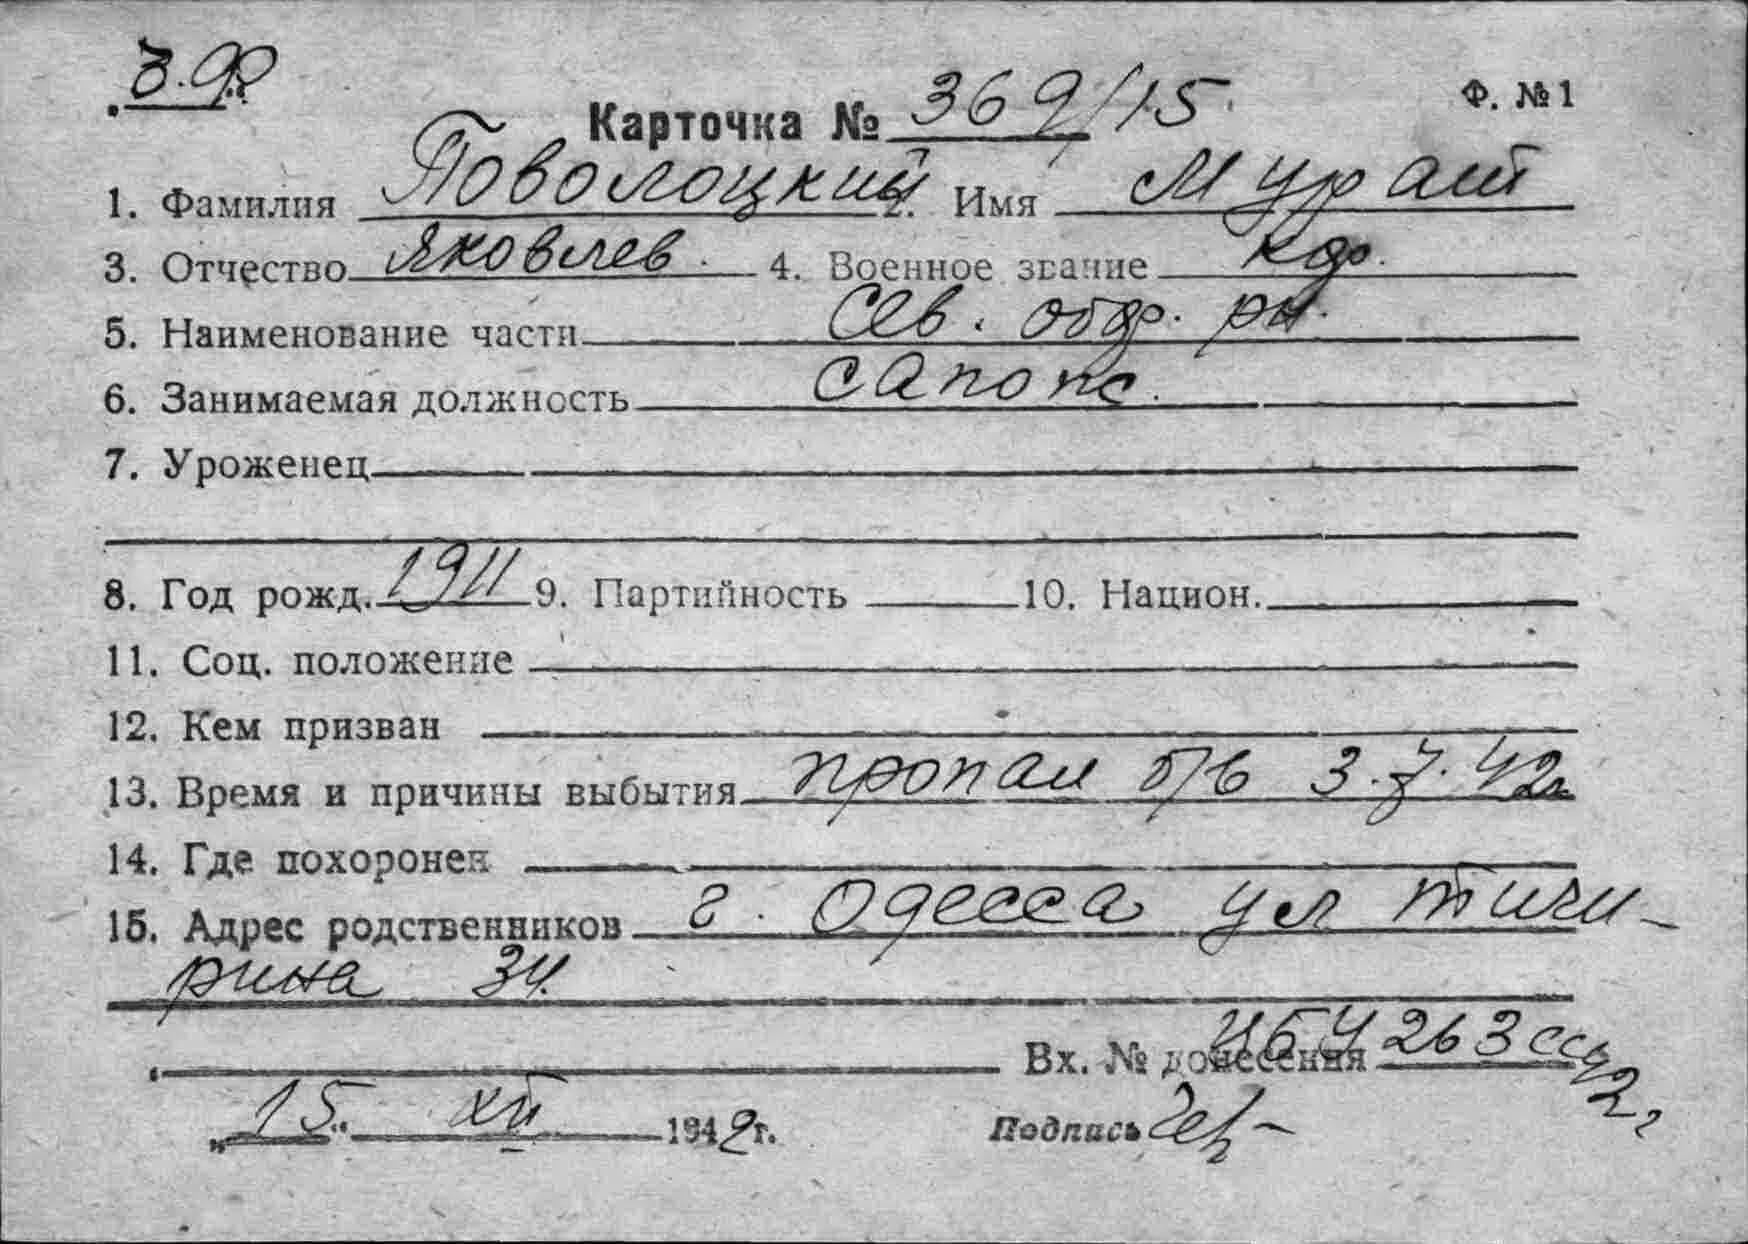 Ч.Ф.
Карточка № 369/15 Ф. № 1
1. Фамилия Поволоцкий 2. Имя Мурат
3. Отчество Яковлев. 4. Военное звание кдр.
5. Наименование части Сев. обор. рн.
6. Занимаемая должность
7. Уроженец
8. Год рожд. 1911 9. Партийность 10. Национ.
11. Соц. положение
12. Кем призван
13. Время и причины выбытия пропал б/в 3.7.42г
14. Где похоронен
15. Адрес родственников г. Одесса ул Тичи-
рина 34.
Вх. № донесения 263сс 42г
„15“ XII 1942г. Подпись